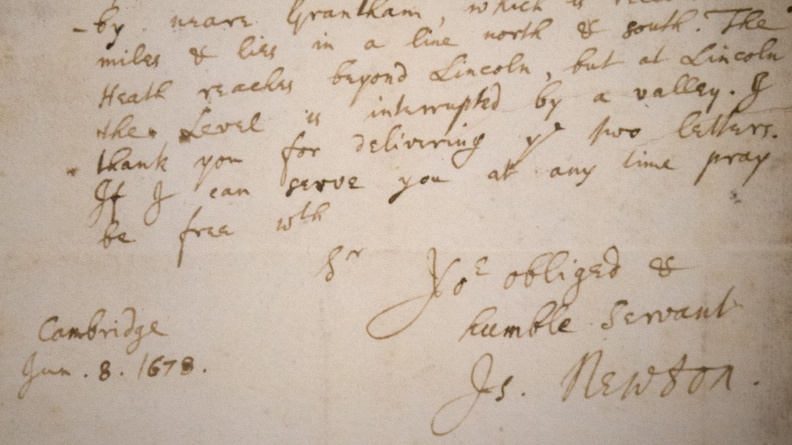 by neare Grantham, which is
miles & lies in a line north & south. The
Heath reaches beyond Lincoln, but at Lincoln
the Level is interrupted by a valley. I
thank you for delivering yᵉ two letters.
If I can serve you at any time pray
be free wth
Sr
Yor obliged &
humble Servant
Is. Newton.
Cambridge
Jun. 8. 1678.